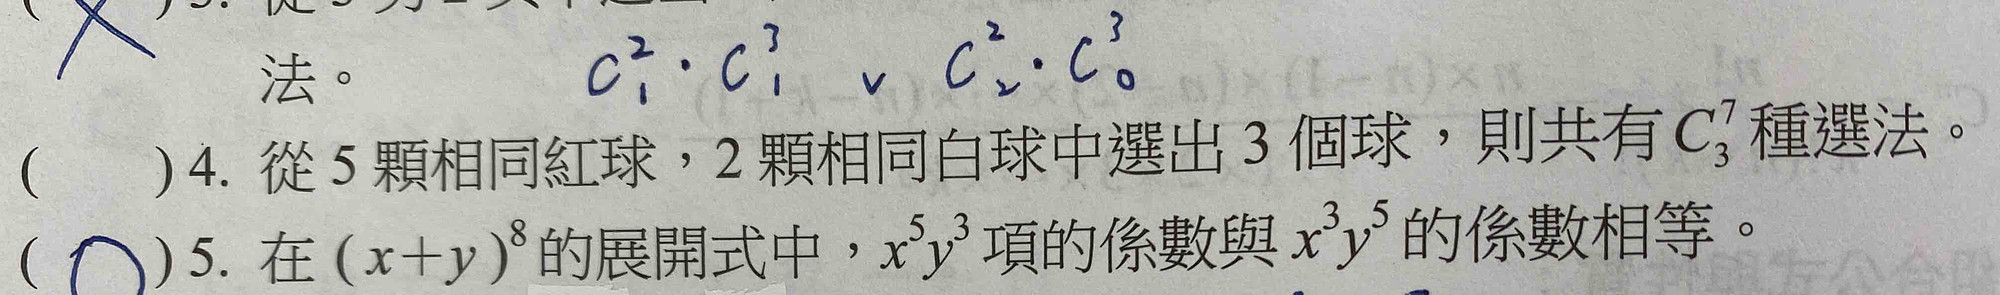 法。 C₁² · C₁³ v C₂² · C₀³
( ) 4. 從 5 顆相同紅球，2 顆相同白球中選出 3 個球，則共有 C₃⁷ 種選法。
( O ) 5. 在 ( x+y )⁸ 的展開式中，x⁵y³ 項的係數與 x³y⁵ 的係數相等。